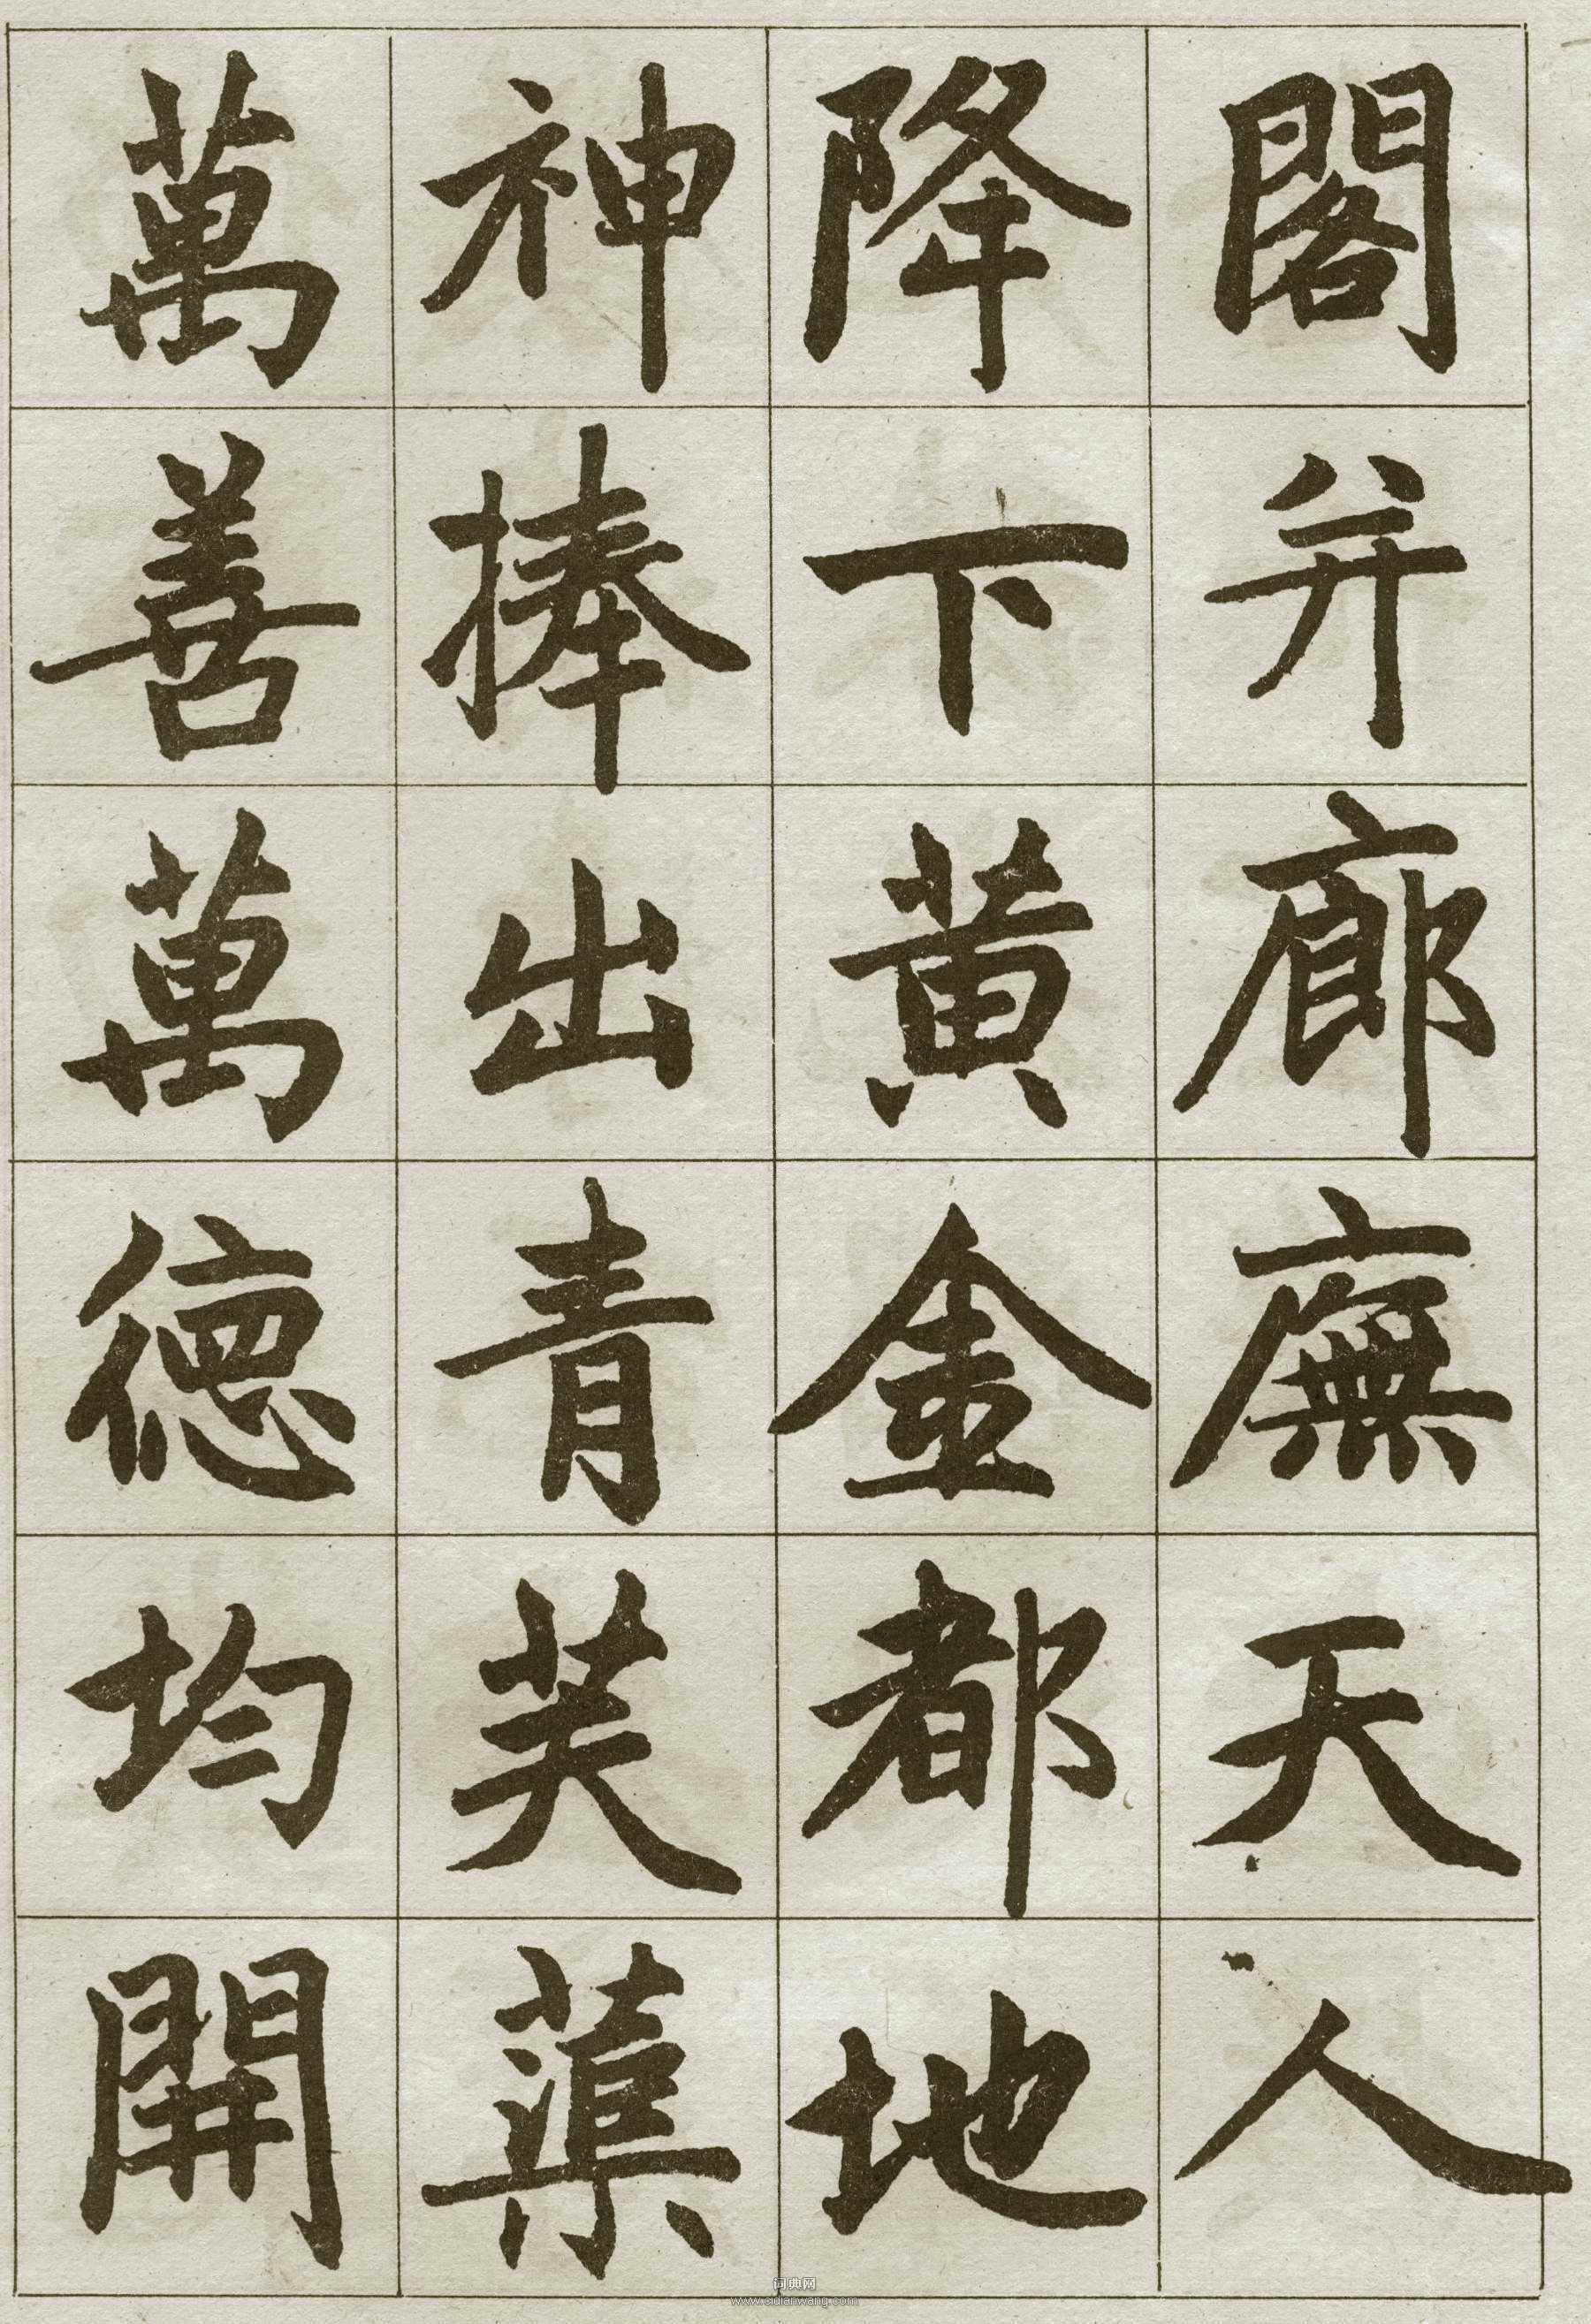 閣并廊廡天人
降下黄金都地
神捧出青芙蕖
萬善萬德均開
词典网
www.cidianwang.com